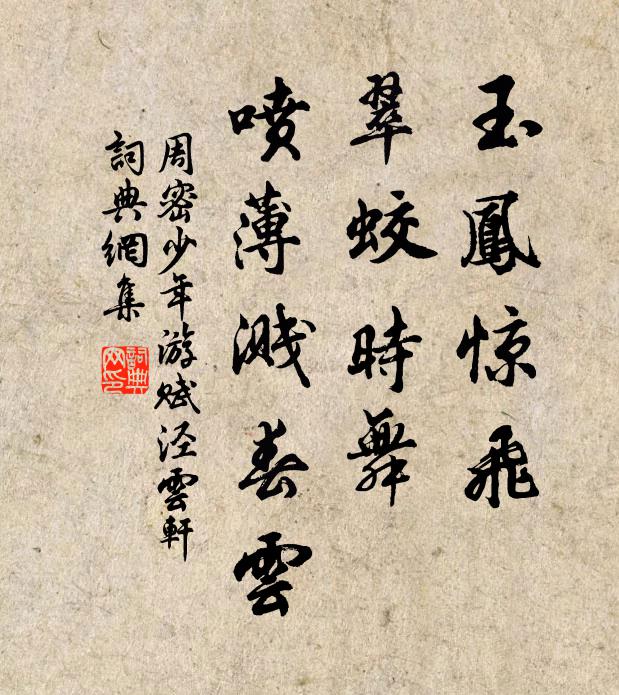 玉鳳惊飛
翠蛟時舞
喷薄溅春雲
周密少年游賦泾雲軒
詞典網集
詞典
网印